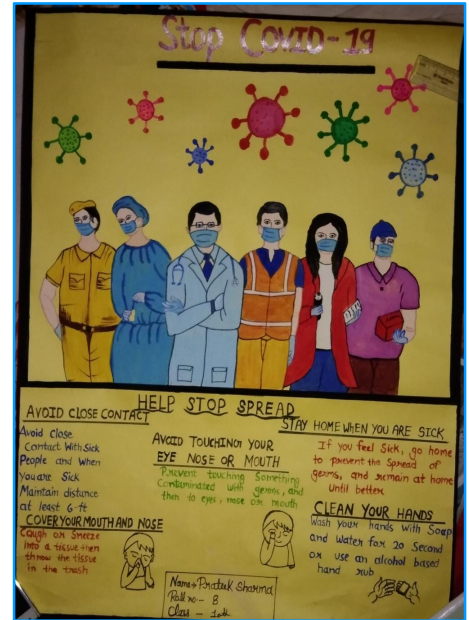 Stop COVID-19
HELP STOP SPREAD
AVOID CLOSE CONTACT
Avoid close
Contact With Sick
People and When
you are Sick
Maintain distance
at least 6-ft
COVER YOUR MOUTH AND NOSE
Cough or Sneeze
into a tissue then
throw the tissue
in the trash
AVOID TOUCHING YOUR
EYE NOSE OR MOUTH
Prevent touching Something
Contaminated with germs, and
then to eyes, nose or mouth
STAY HOME WHEN YOU ARE SICK
If you feel Sick, go home
to prevent the Spread of
germs, and remain at home
until better
CLEAN YOUR HANDS
Wash your hands with Soap
and Water for 20 Second
or use an alcohol based
hand rub
Name → Prateek Sharma
Roll no - 8
Class - 10th